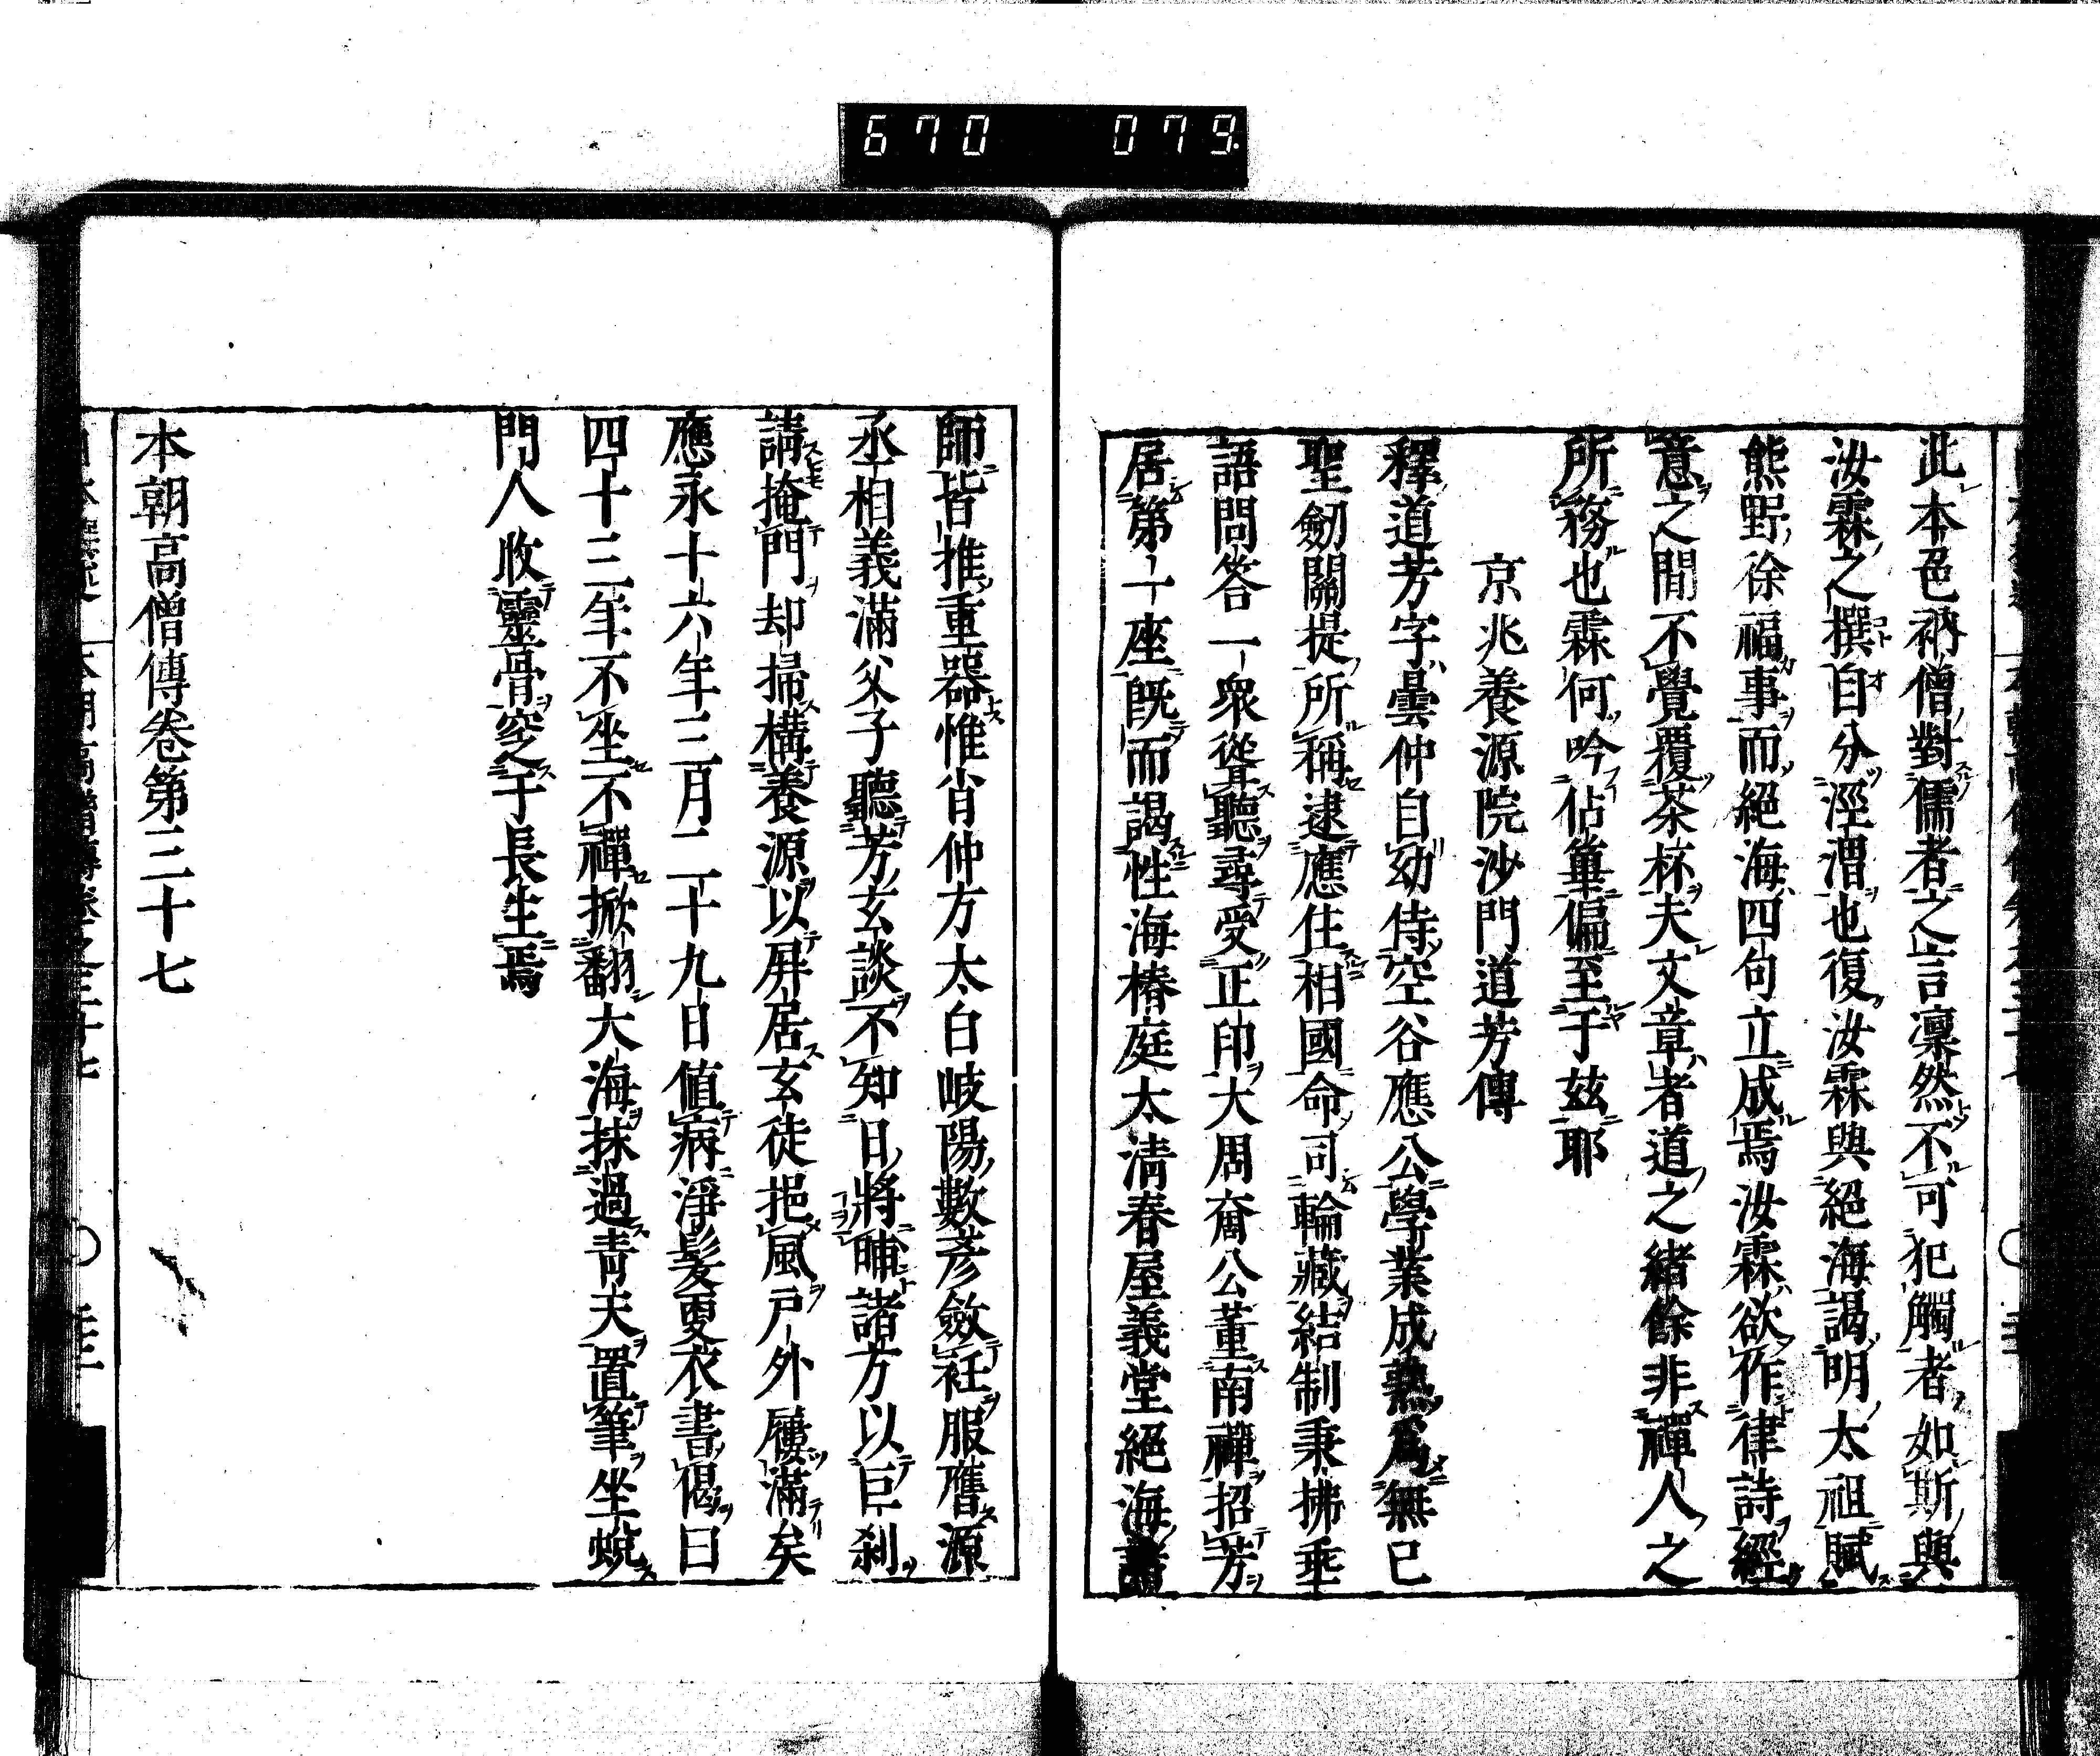 670 079
此本色衲僧對儒者之言凛然不可犯觸者如斯與
汝霖之撰自分涇漕也復汝霖與絕海謁明太祖賦
熊野徐福事而絕海四句立成焉汝霖欲作律詩經
意之間不覺覆茶杯夫文章者道之緒餘非禪人之
所務也霖何吟佔畢偏至于茲耶
京兆養源院沙門道芳傳
釋道芳字曇仲自幼侍空谷應公學業成熟爲無已
聖劒關提所稱逮應住相國命司輪藏結制秉拂垂
語問答一衆聳聽尋受正印大周奝公董南禪招芳
居第一座既而謁性海椿庭太清春屋義堂絕海諸
師皆推重器惟肖仲方太白岐陽數彥斂衽服膺源
丞相義滿父子聽芳玄談不知日將晡諸方以巨刹
請掩門却掃構養源以屏居玄徒挹風戶外屨滿矣
應永十六年三月二十九日値病淨髮更衣書偈曰
四十三年不坐不禪掀翻大海抹過青天置筆坐蛻
門人收靈骨窆于長生焉
本朝高僧傳卷第三十七